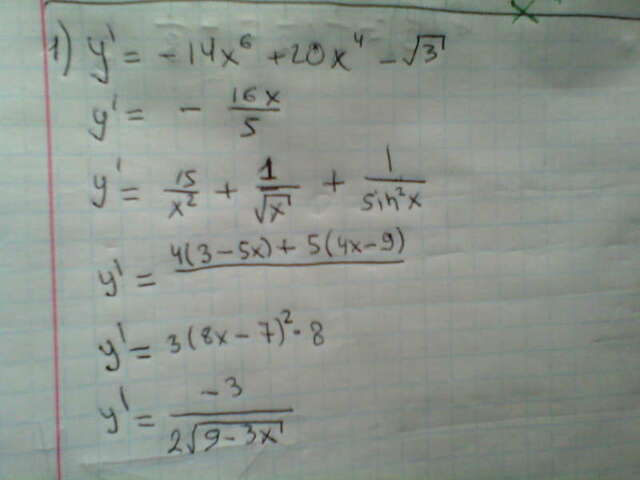 1) y' = -14x⁶ + 20x⁴ - √3
y' = - 16x/5
y' = 15/x² + 1/√x + 1/sin²x
y' = 4(3-5x) + 5(4x-9)
y' = 3(8x-7)²·8
y' = -3/2√9-3x